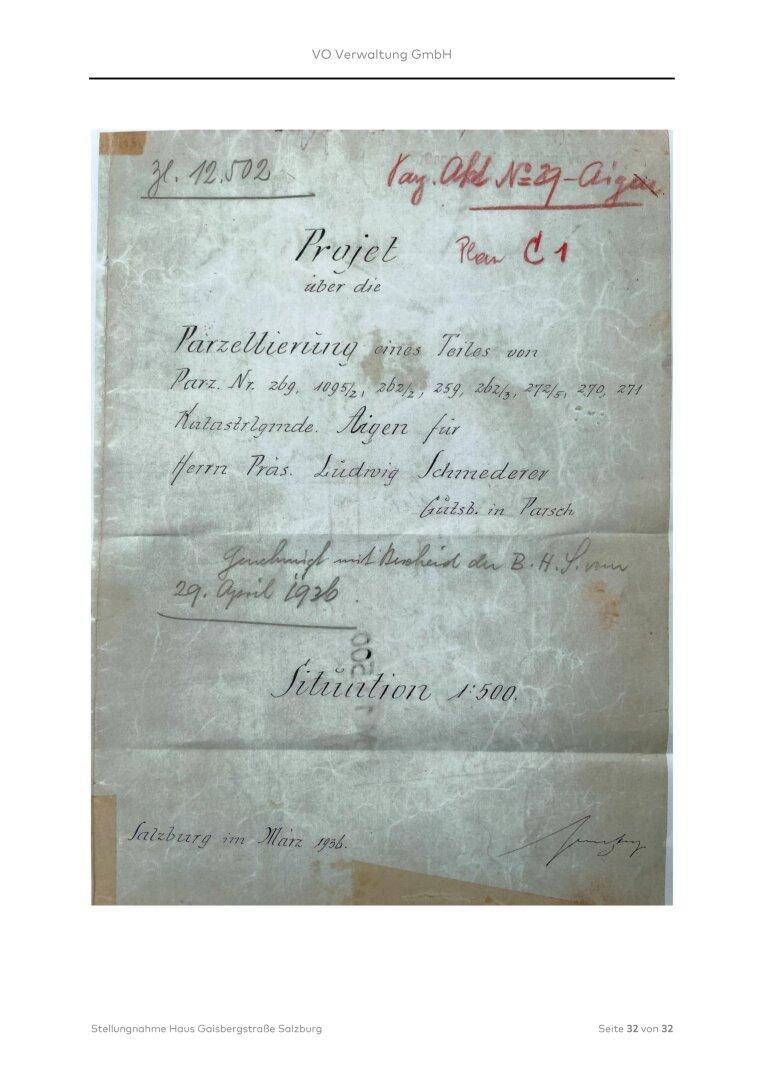 VO Verwaltung GmbH
Zl. 12.502
Parz. Akt No 29-Aigen
Projet Plan C 1
über die
Parzellierung eines Teiles von
Parz. Nr. 269, 1095/2, 262/2, 259, 262/3, 272/5, 270, 271
Katastrlgmde. Aigen für
Herrn Präs. Ludwig Schmederer
Gutsb. in Parsch
Genehmigt mit Bescheid der B.H.S. vom
29. April 1936
500
Situation 1:500.
Salzburg im März 1936.
Stellungnahme Haus Gaisbergstraße Salzburg
Seite 32 von 32